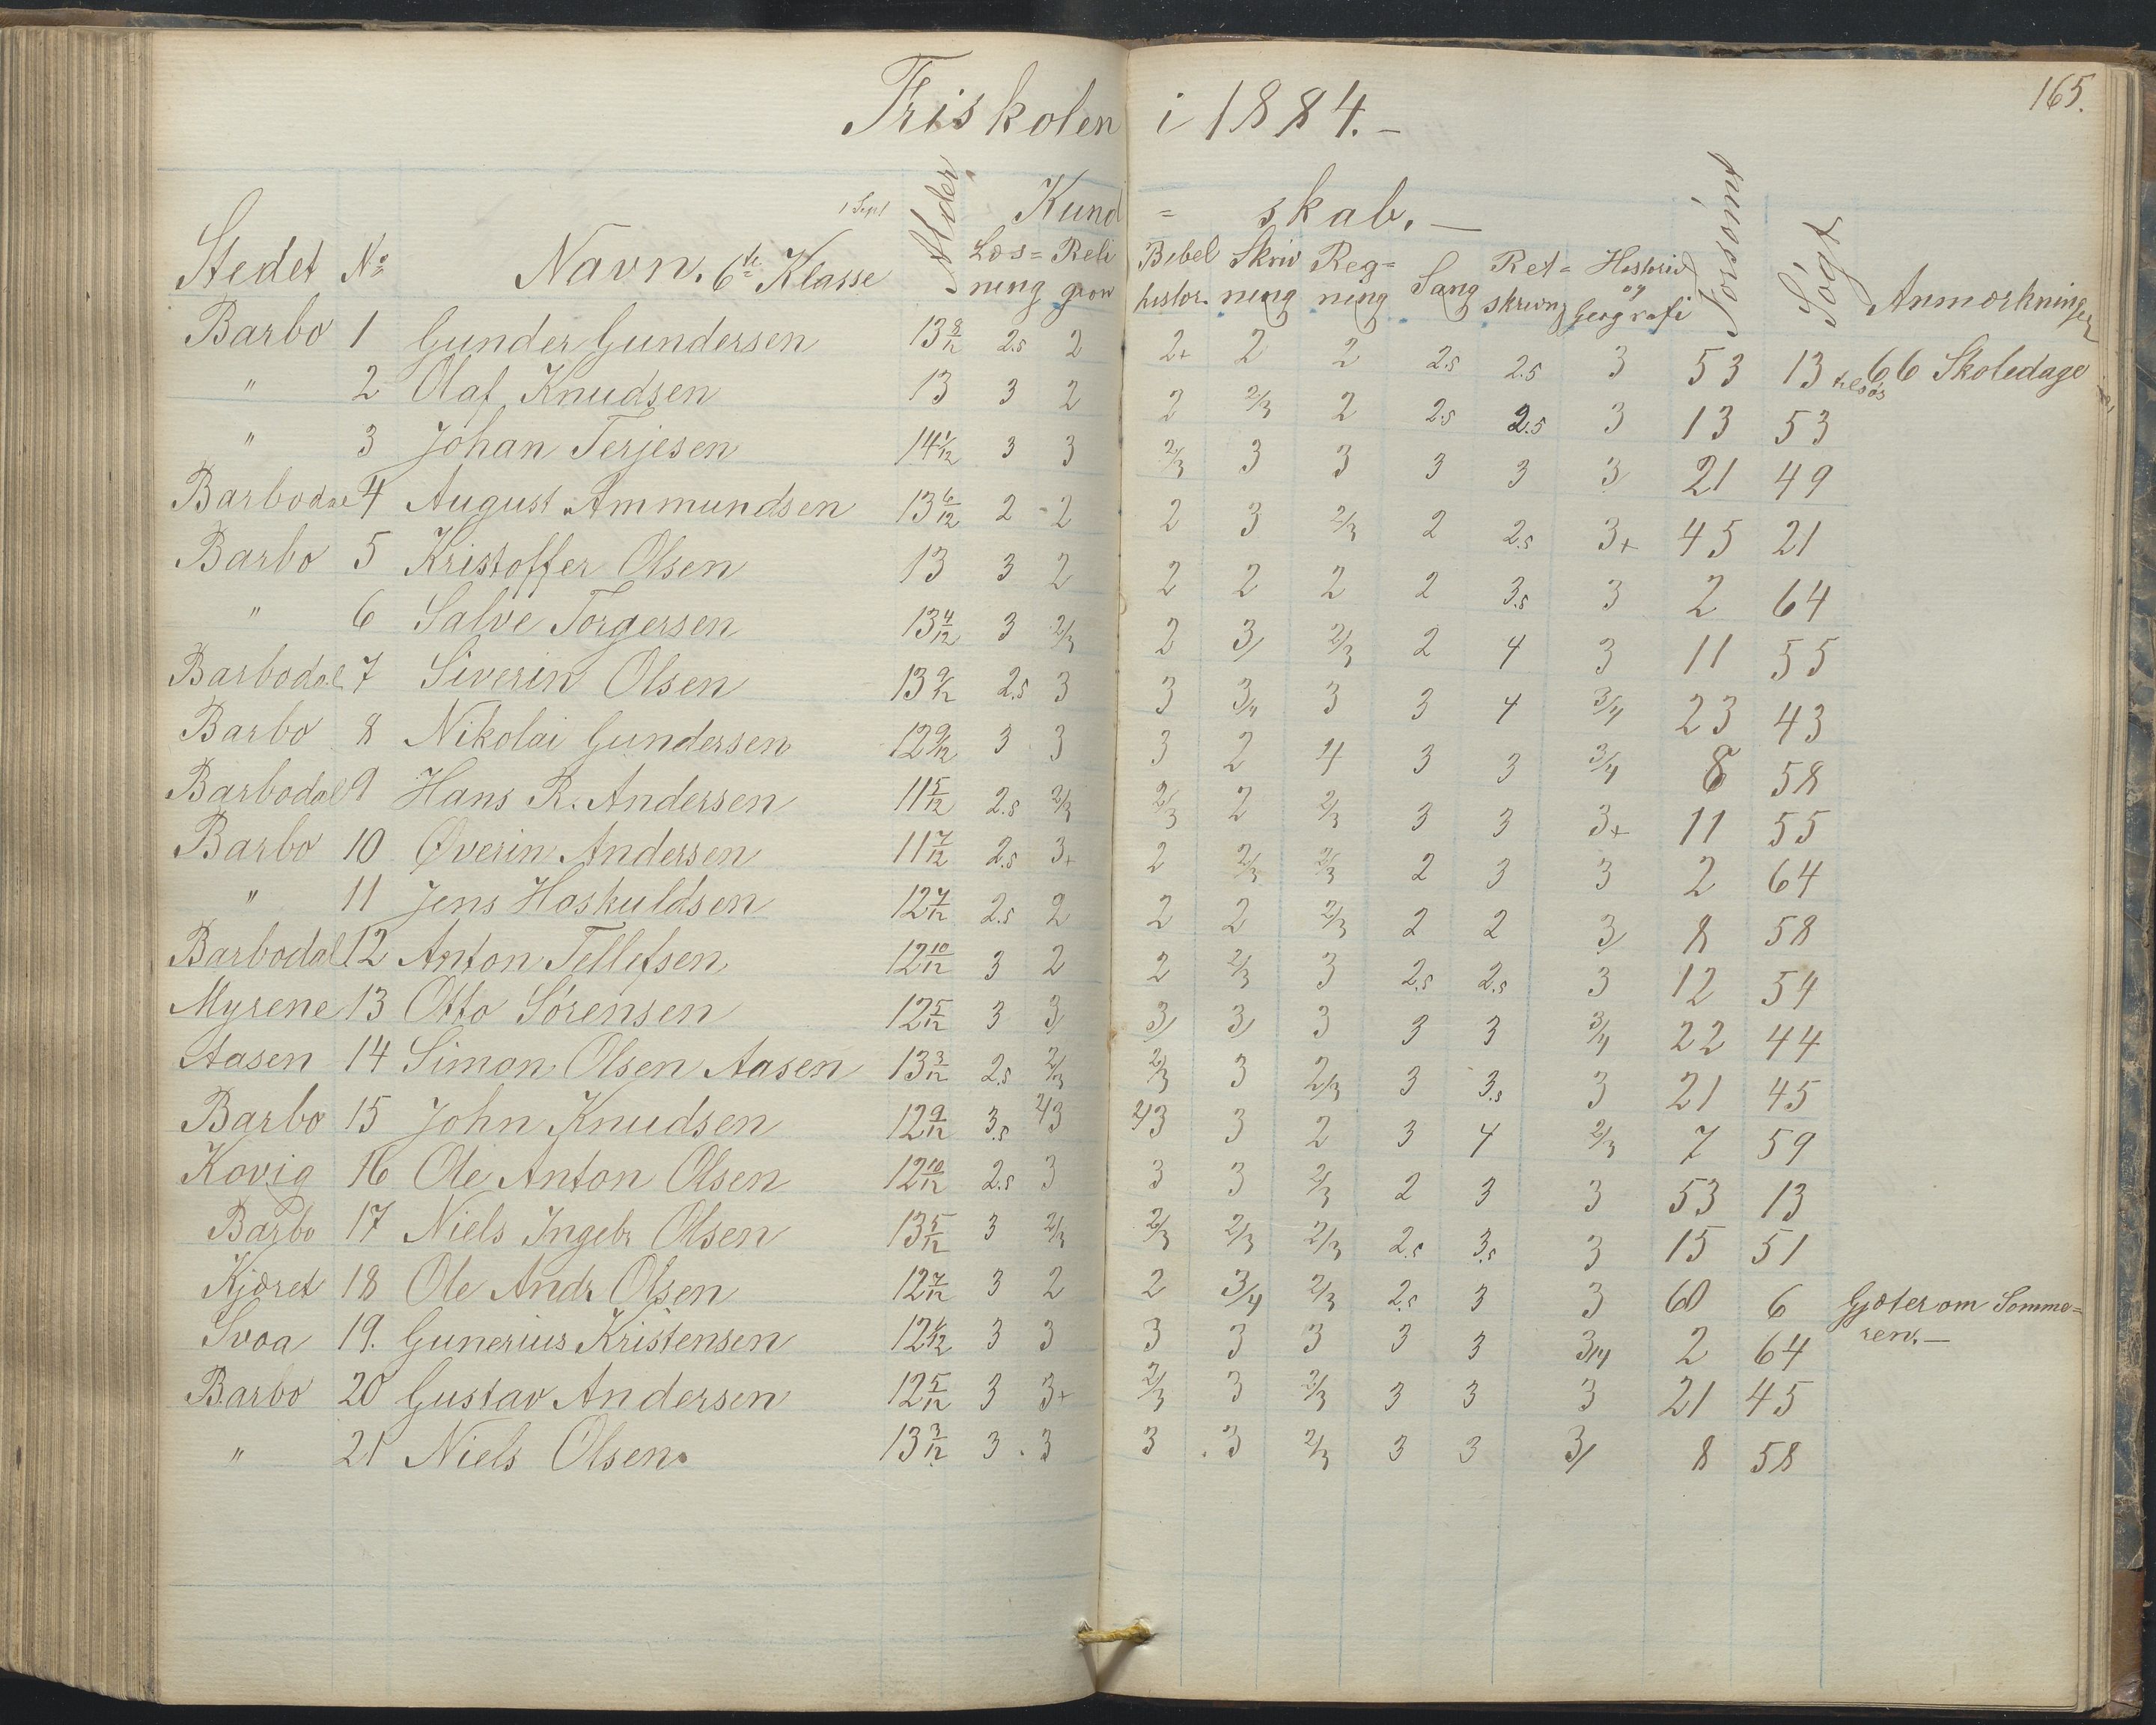 165.
Friskolen i 1884.-
1 Sept Alder Kund = skab.- Forsómt Sógt
Stedet No Navn. 6te Klasse Læs=ning Reli gion Bibel histor. Skriv ning Reg=ning Sang Ret=skrivng Historie og Geografi Anmærkninger
Barbo 1 Gunder Gundersen 13 8/12 2.5 2 2+ 2 2 2.5 2.5 3 53 13 66 Skoledage
" 2 Olaf Knudsen 13 3 2 2 2/3 2 2.5 2.5 3 13 53
" 3 Johan Terjesen 14 1/12 3 3 2/3 3 3 3 3 3 21 49
Barbodal 4 August Ammundsen 13 6/12 2 2 2 3 2/3 2 2.5 3+ 45 21
Barbo 5 Kristoffer Olsen 13 3 2 2 2 2 2 3.5 3 2 64
" 6 Salve Torgersen 13 4/12 3 2/3 2 3/ 2/3 2 4 3 11 55
Barbodal 7 Siverin Olsen 13 9/12 2.5 3 3 3/4 3 3 4 3/4 23 43
Barbo 8 Nikolai Gundersen 12 9/12 3 3 3 2 4 3 3 3/4 8 58
Barbodal 9 Hans R. Andersen 11 5/12 2.5 2/3 2/3 2 2/3 3 3 3+ 11 55
Barbo 10 Øverin Andersen 11 7/12 2.5 3+ 2 2/3 2/3 2 3 3 2 64
" 11 Jens Hoskuldsen 12 7/12 2.5 2 2 2 2/3 2 2 3/ 8 58
Barbodal 12 Anton Tellefsen 12 10/12 3 2 2 2/3 3 2.5 2.5 3 12 54
Myrene 13 Otto Sórensen 12 5/12 3 3/ 3/ 3/ 3 3 3 3/4 22 44
Aasen 14 Simon Olsen Aasen 13 3/12 2.5 2/3 2/3 3 2/3 3 3.5 3 21 45
Barbo 15 John Knudsen 12 9/12 3.5 2/3 2/3 3 2 3 4 2/3 7 59
Kovig 16 Ole Anton Olsen 12 10/12 2.5 3 3 3 2/3 2 3 3 53 13
Barbo 17 Niels Ingebr Olsen 13 5/12 3 2/3 2/3 2/3 2/3 2.5 3.5 3 15 51
Kjæret 18 Ole Andr. Olsen 12 7/12 3 2 2 3/4 2/3 2.5 3 3 60 6 Gjæter om Somme=
ren.-
Svoa 19. Gunerius Kristensen 12 6/12 3 3 3 3 3 3 3 3/4 2 64
Barbo 20 Gustav Andersen 12 5/12 3 3+ 2/3 3 2/3 3 3 3 21 45
" 21 Niels Olsen. 13 3/12 3 3 3 3 2/3 3 3 3/ 8 58